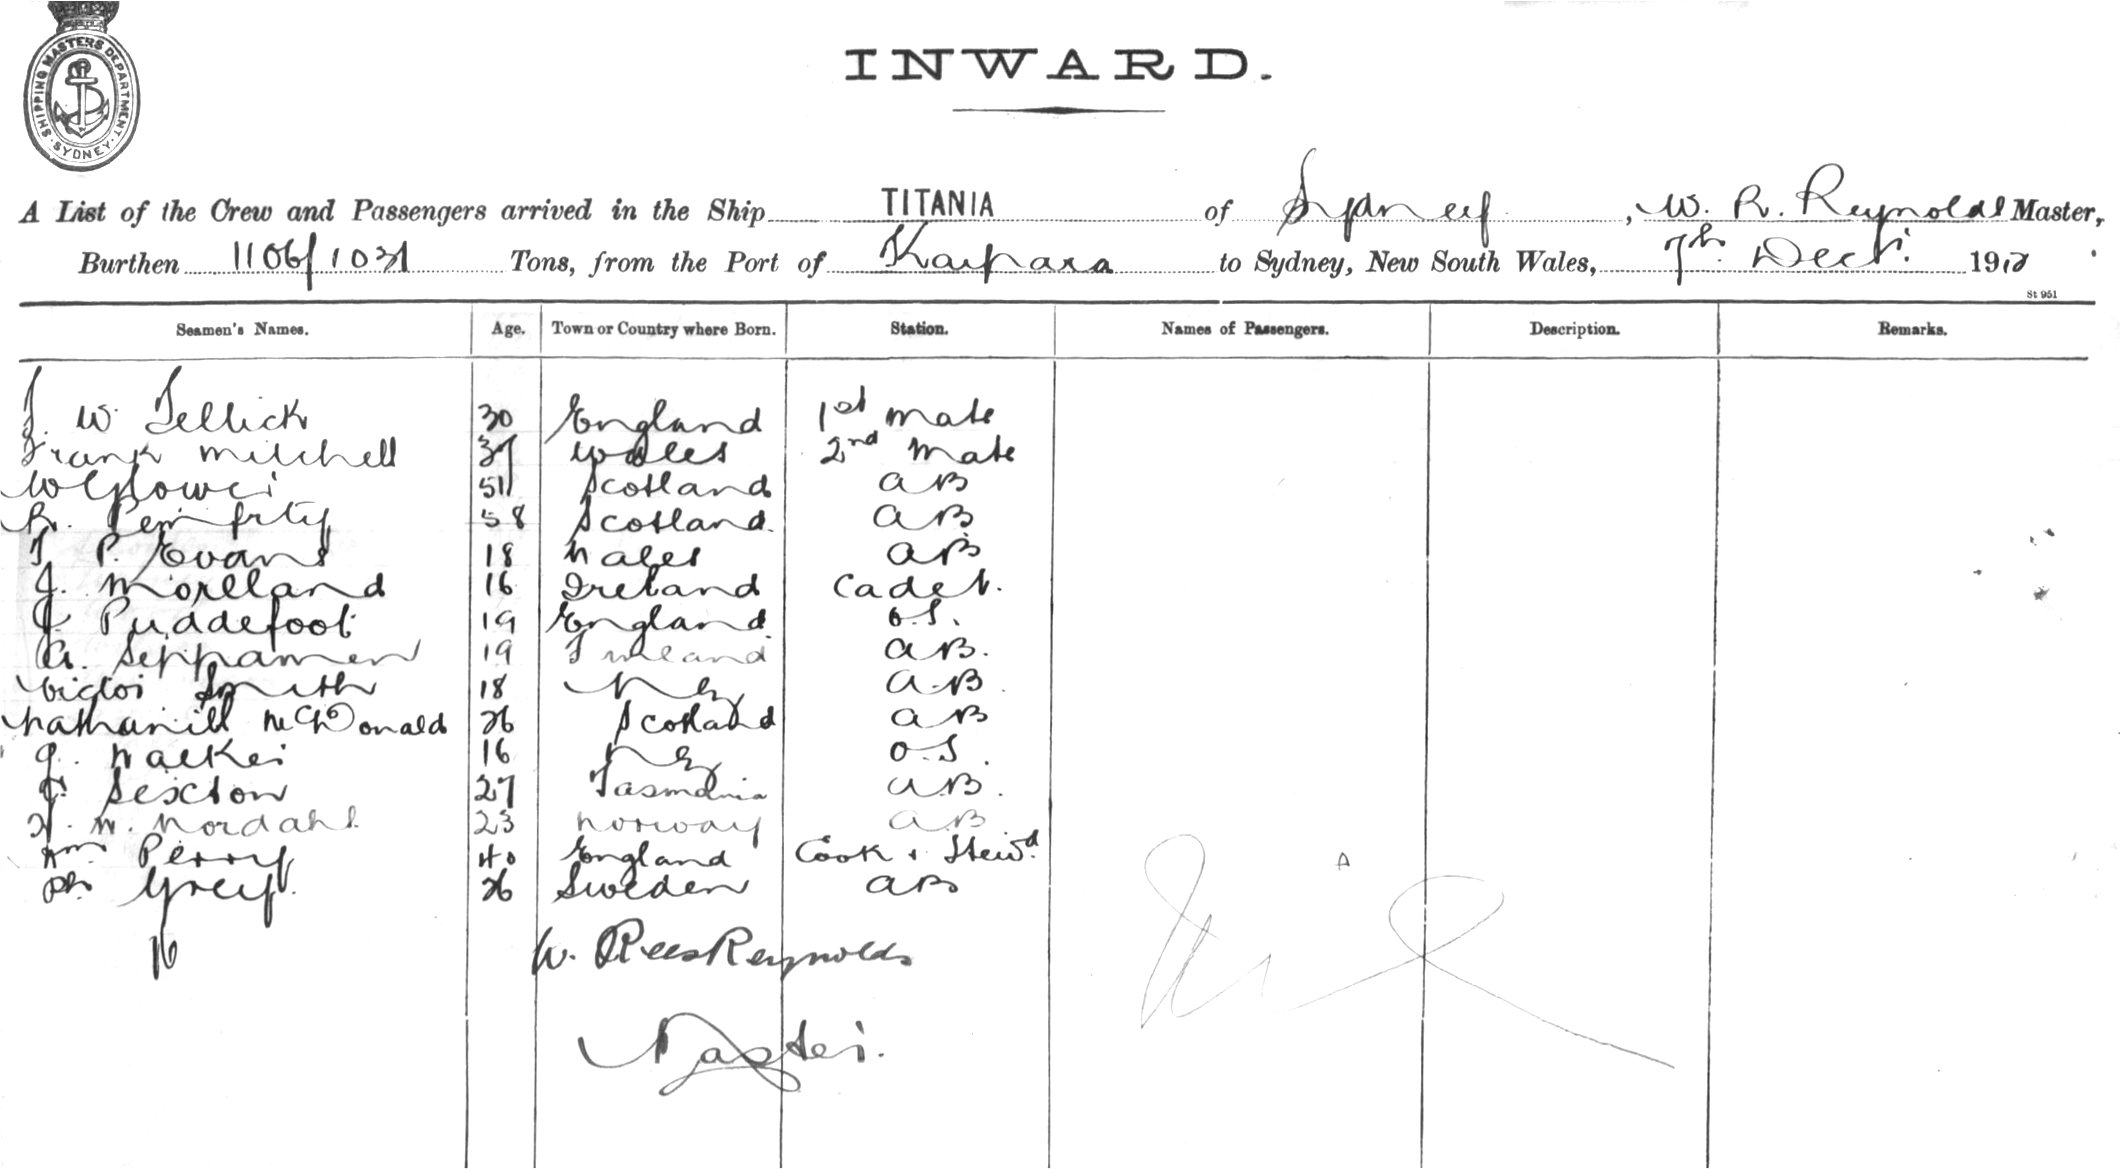 SHIPPING MASTERS DEPARTMENT
SYDNEY
INWARD.
A List of the Crew and Passengers arrived in the Ship TITANIA of Sydney, W. R. Reynolds Master,
Burthen 1106/ Tons, from the Port of Kaipara to Sydney, New South Wales, 7th Decr. 191
St 951
Seamen's Names. Age. Town or Country where Born. Station. Names of Passengers. Description. Remarks.
W. Tellick 30 England 1st mate
Frank Mitchell 37 Wales 2nd mate
51 Scotland AB
58 Scotland AB
T P. Evans 18 Wales AB
J. Morlland 16 Ireland Cadet.
J. Puddefoot 19 England O.S.
A. Seppamen 19 AB.
Victor Smith 18 NZ AB.
Nathaniell McDonald 26 Scotland AB
J. Walker 16 NZ O.S.
Sexton 27 Tasmania AB.
W. Nordahl 23 Norway AB
Wm. Perry 40 England Cook & Stewd.
Greiff. 26 Sweden AB
16
W. Rees Reynolds
Master.
Nil